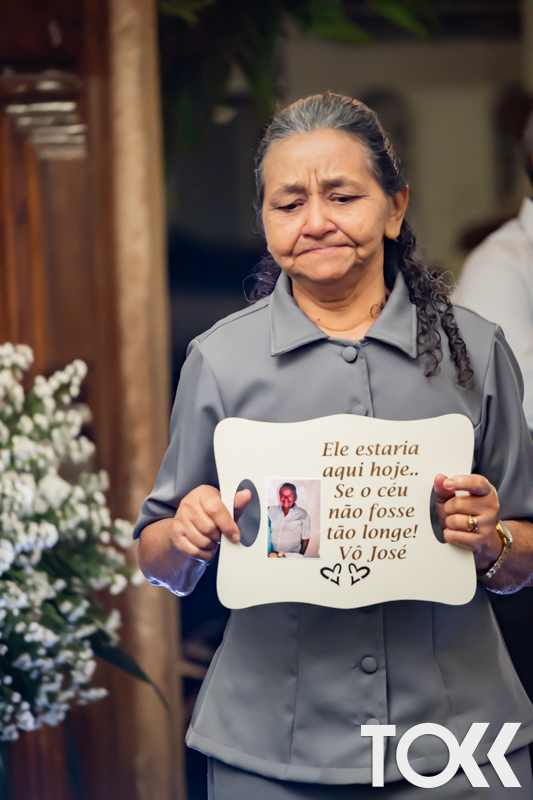 Ele estaria
aqui hoje..
Se o céu
não fosse
tão longe!
Vô José
TOKK